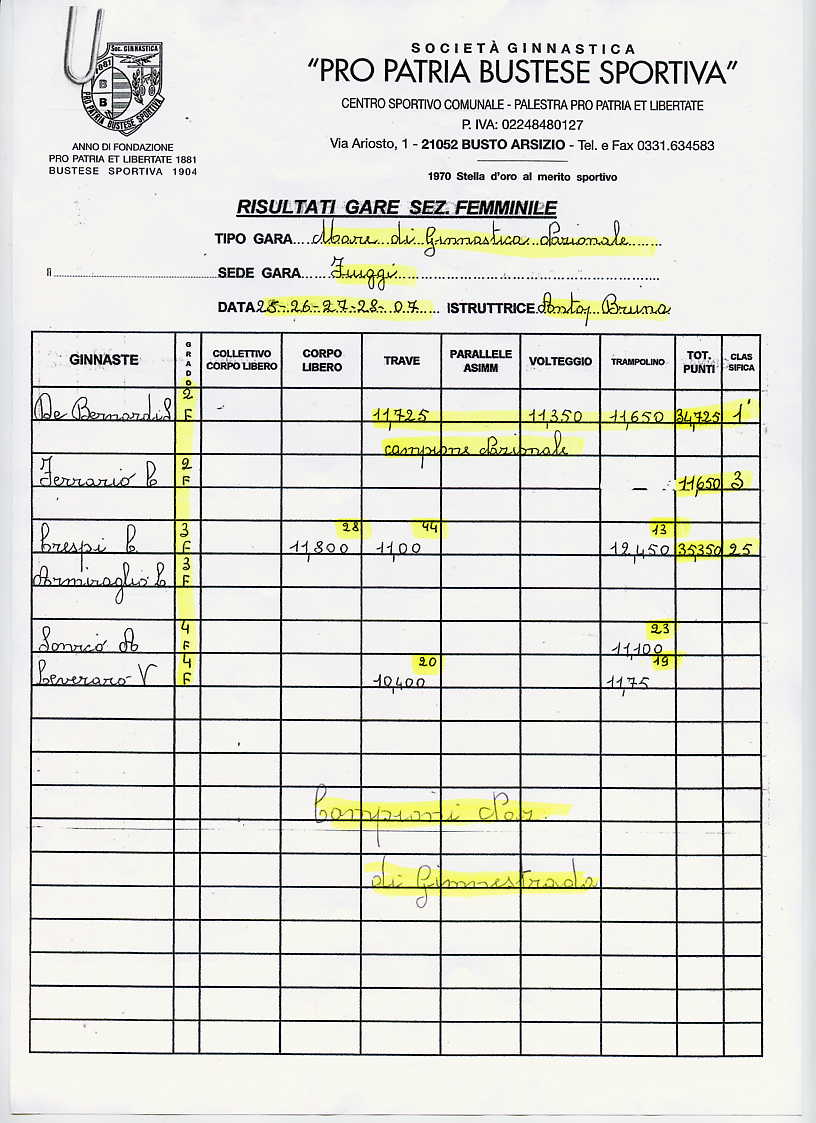 Soc. GINNASTICA
1881
B
B
PRO PATRIA BUSTESE SPORTIVA
ANNO DI FONDAZIONE
PRO PATRIA ET LIBERTATE 1881
BUSTESE SPORTIVA 1904
SOCIETÀ GINNASTICA
“PRO PATRIA BUSTESE SPORTIVA”
CENTRO SPORTIVO COMUNALE - PALESTRA PRO PATRIA ET LIBERTATE
P. IVA: 02248480127
Via Ariosto, 1 - 21052 BUSTO ARSIZIO - Tel. e Fax 0331.634583
1970 Stella d'oro al merito sportivo
RISULTATI GARE SEZ. FEMMINILE
TIPO GARA.... Mare di Ginnastica Nazionale
lì SEDE GARA...... Fiuggi
DATA 25-26-27-28-07 ISTRUTTRICE Bruna
GINNASTE GRADO COLLETTIVO CORPO LIBERO CORPO LIBERO TRAVE PARALLELE ASIMM VOLTEGGIO TRAMPOLINO TOT. PUNTI CLAS SIFICA
De Bernardi S 2 F - 11,725 11,350 11,650 34,725 1°
campione Nazionale
Ferrario C 2 F — 11,650 3
28 44 13
Crespi C. 3 F 11,800 11,00 12,450 35,350 25
Armiraglio C 3 F
23
Sonvico A 4 F 11,100
20 19
Ceveraro V 4 F 10,400 11,75
Campioni Naz.
di Ginnestrada